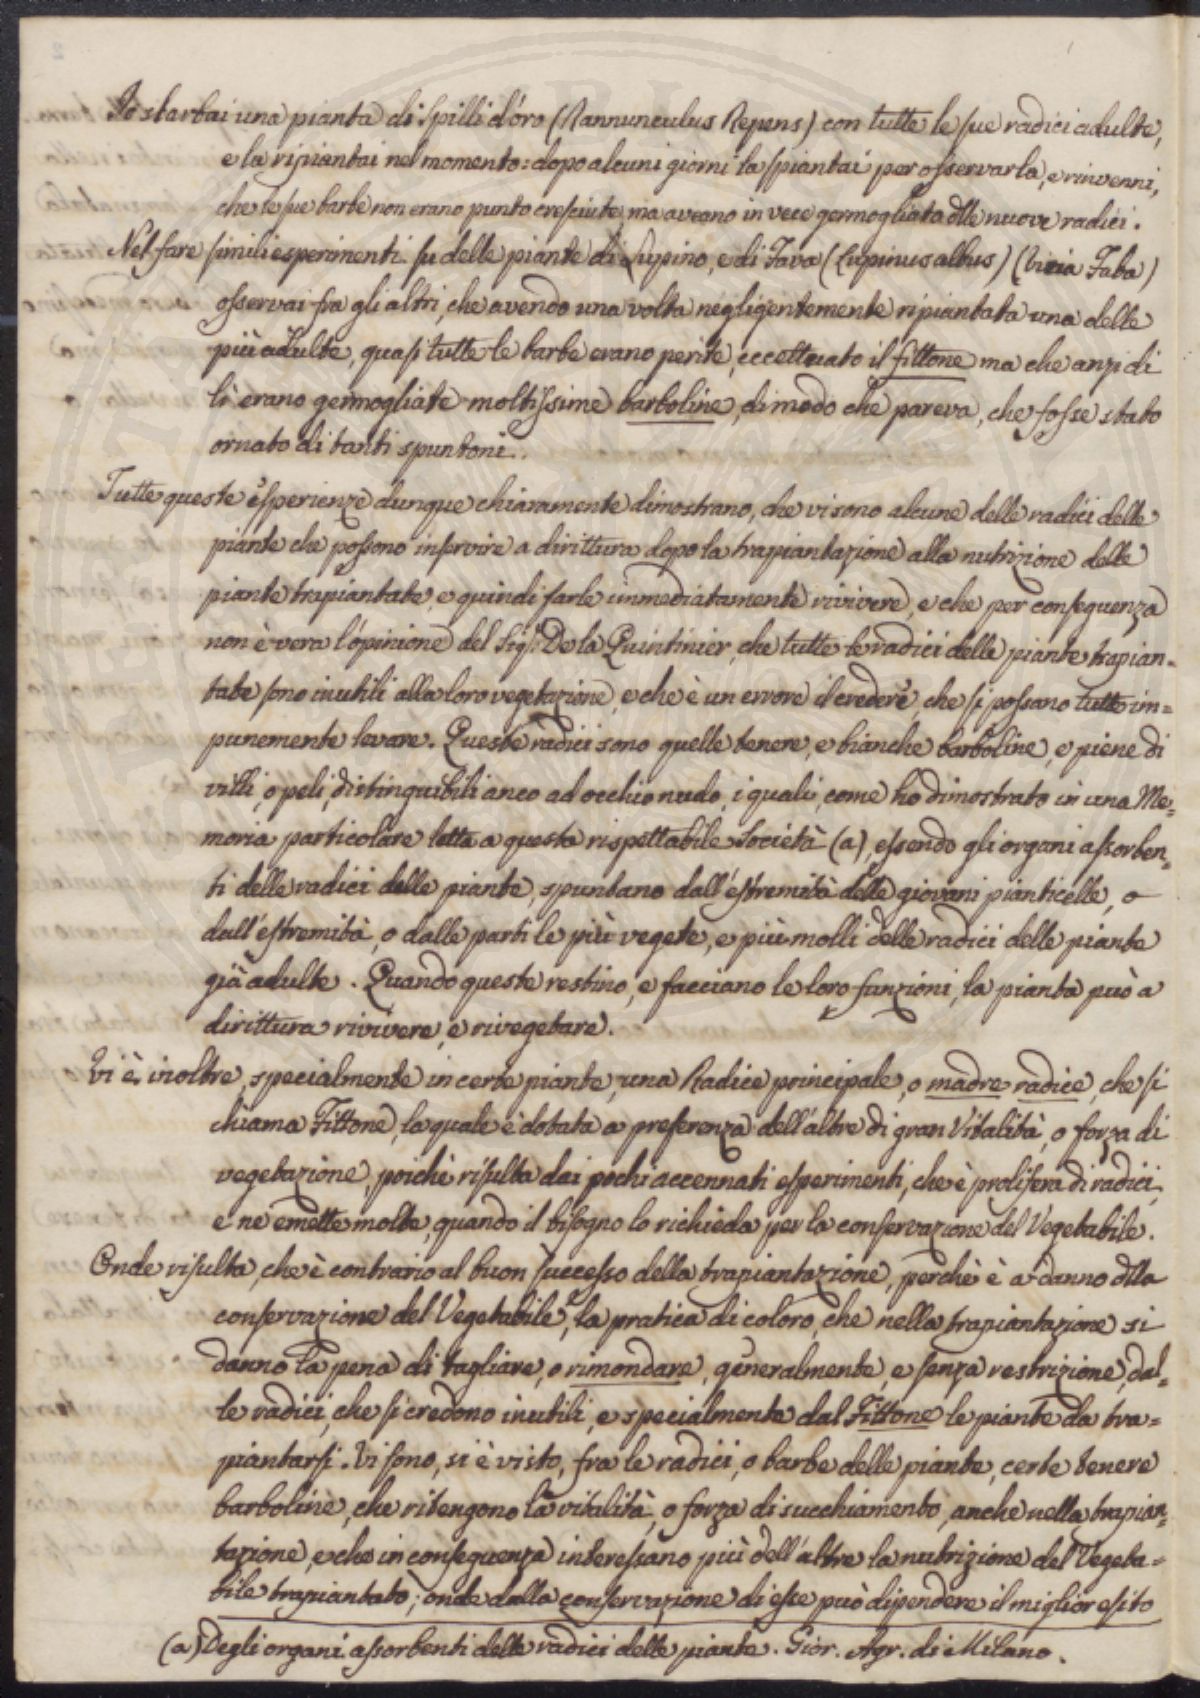 Io sbarbai una pianta di Spilli d'oro (Rannunculus Repens) con tutte le sue radici adulte,
e la ripiantai nel momento: dopo alcuni giorni la spiantai per osservarla, e rinvenni,
che le sue barbe non erano punto cresciute, ma aveano in vece germogliata dlle nuove radici.
Nel fare simili esperimenti su delle piante di Lupino, e di Fava (Lupinus albus) (Vicia Faba)
osservai fra gli altri, che avendo una volta negligentemente ripiantata una delle
più adulte, quasi tutte le barbe erano perite, eccettuato il fittone ma che anzi di
lì erano germogliate moltissime barboline, di modo che pareva, che fosse stato
ornato di tanti spuntoni.
Tutte queste esperienze dunque chiaramente dimostrano, che vi sono alcune delle radici delle
piante che possono inservire a dirittura dopo la trapiantazione alla nutrizione delle
piante trapiantate, e quindi farle immediatamente rivivere, e che per conseguenza
non è vera l'opinione del Sig.r De la Quintinier, che tutte le radici delle piante trapian=
tate sono inutili alla loro vegetazione, e che è un errore il credere, che si possano tutte im=
punemente levare. Queste radici sono quelle tenere, e bianche barboline, e piene di
villi, o peli, distinguibili anco ad occhio nudo, i quali, come ho dimostrato in una Me=
moria particolare letta a questa rispettabile Società (a), essendo gli organi assorben=
ti delle radici delle piante, spuntano dall'estremità delle giovani pianticelle, o
dall'estremità, o dalle parti le più vegete, e più molli delle radici delle piante
già adulte. Quando queste restino, e facciano le loro funzioni, la pianta può a
dirittura rivivere, e rivegetare.
Vi è inoltre, specialmente in certe piante, una Radice principale, o madre radice, che si
chiama Fittone, la quale è dotata a preferenza dell'altre di gran Vitalità, o forza di
vegetazione, poichè risulta dai pochi accennati esperimenti, che è prolifera di radici,
e ne emette molte, quando il bisogno lo richieda per la conservazione del Vegetabile.
Onde risulta, che è contrario al buon successo della trapiantazione, perchè è a danno dlla
conservazione del Vegetabile, la pratica di coloro, che nella trapiantazione si
danno la pena di tagliare, o rimondare, generalmente, e senza restrizione, dal=
le radici, che si credono inutili, e specialmente dal Fittone le piante da tra=
piantarsi. Vi sono, si è visto, fra le radici, o barbe delle piante, certe tenere
barboline, che ritengono la vitalità, o forza di succhiamento, anche nella trapian=
tazione, e che in conseguenza interessano più dell'altre la nutrizione del Vegeta=
bile trapiantato; onde dalla conservazione di esse può dipendere il miglior esito
(a) Degli organi assorbenti delle radici delle piante. Gior. Agr. di Milano.